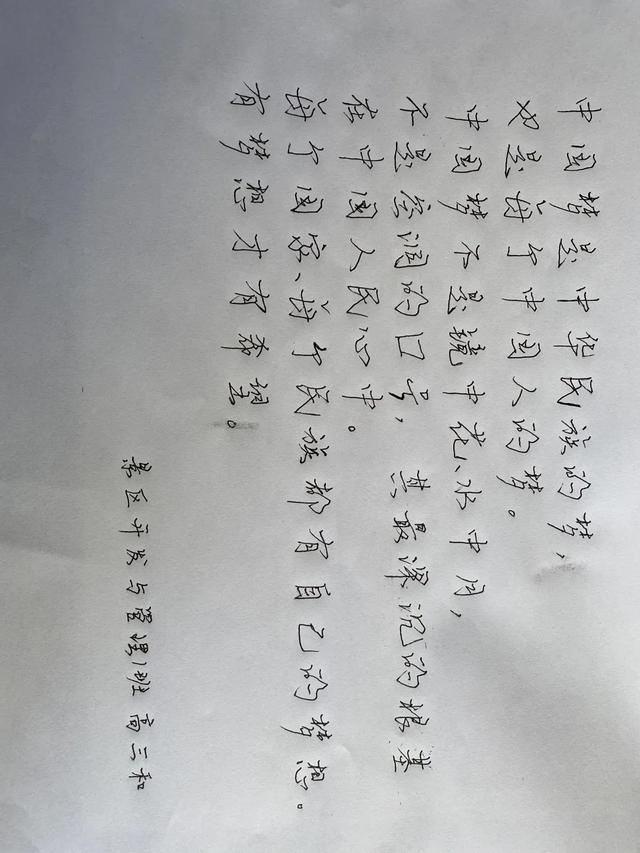 中国梦是中华民族的梦，
也是每个中国人的梦。
中国梦不是镜中花、水中月，
不是空洞的口号，其最深沉的根基
在中国人民心中。
每个国家、每个民族都有自己的梦想。
有梦想才有希望。
景区开发与管理1班 高三和